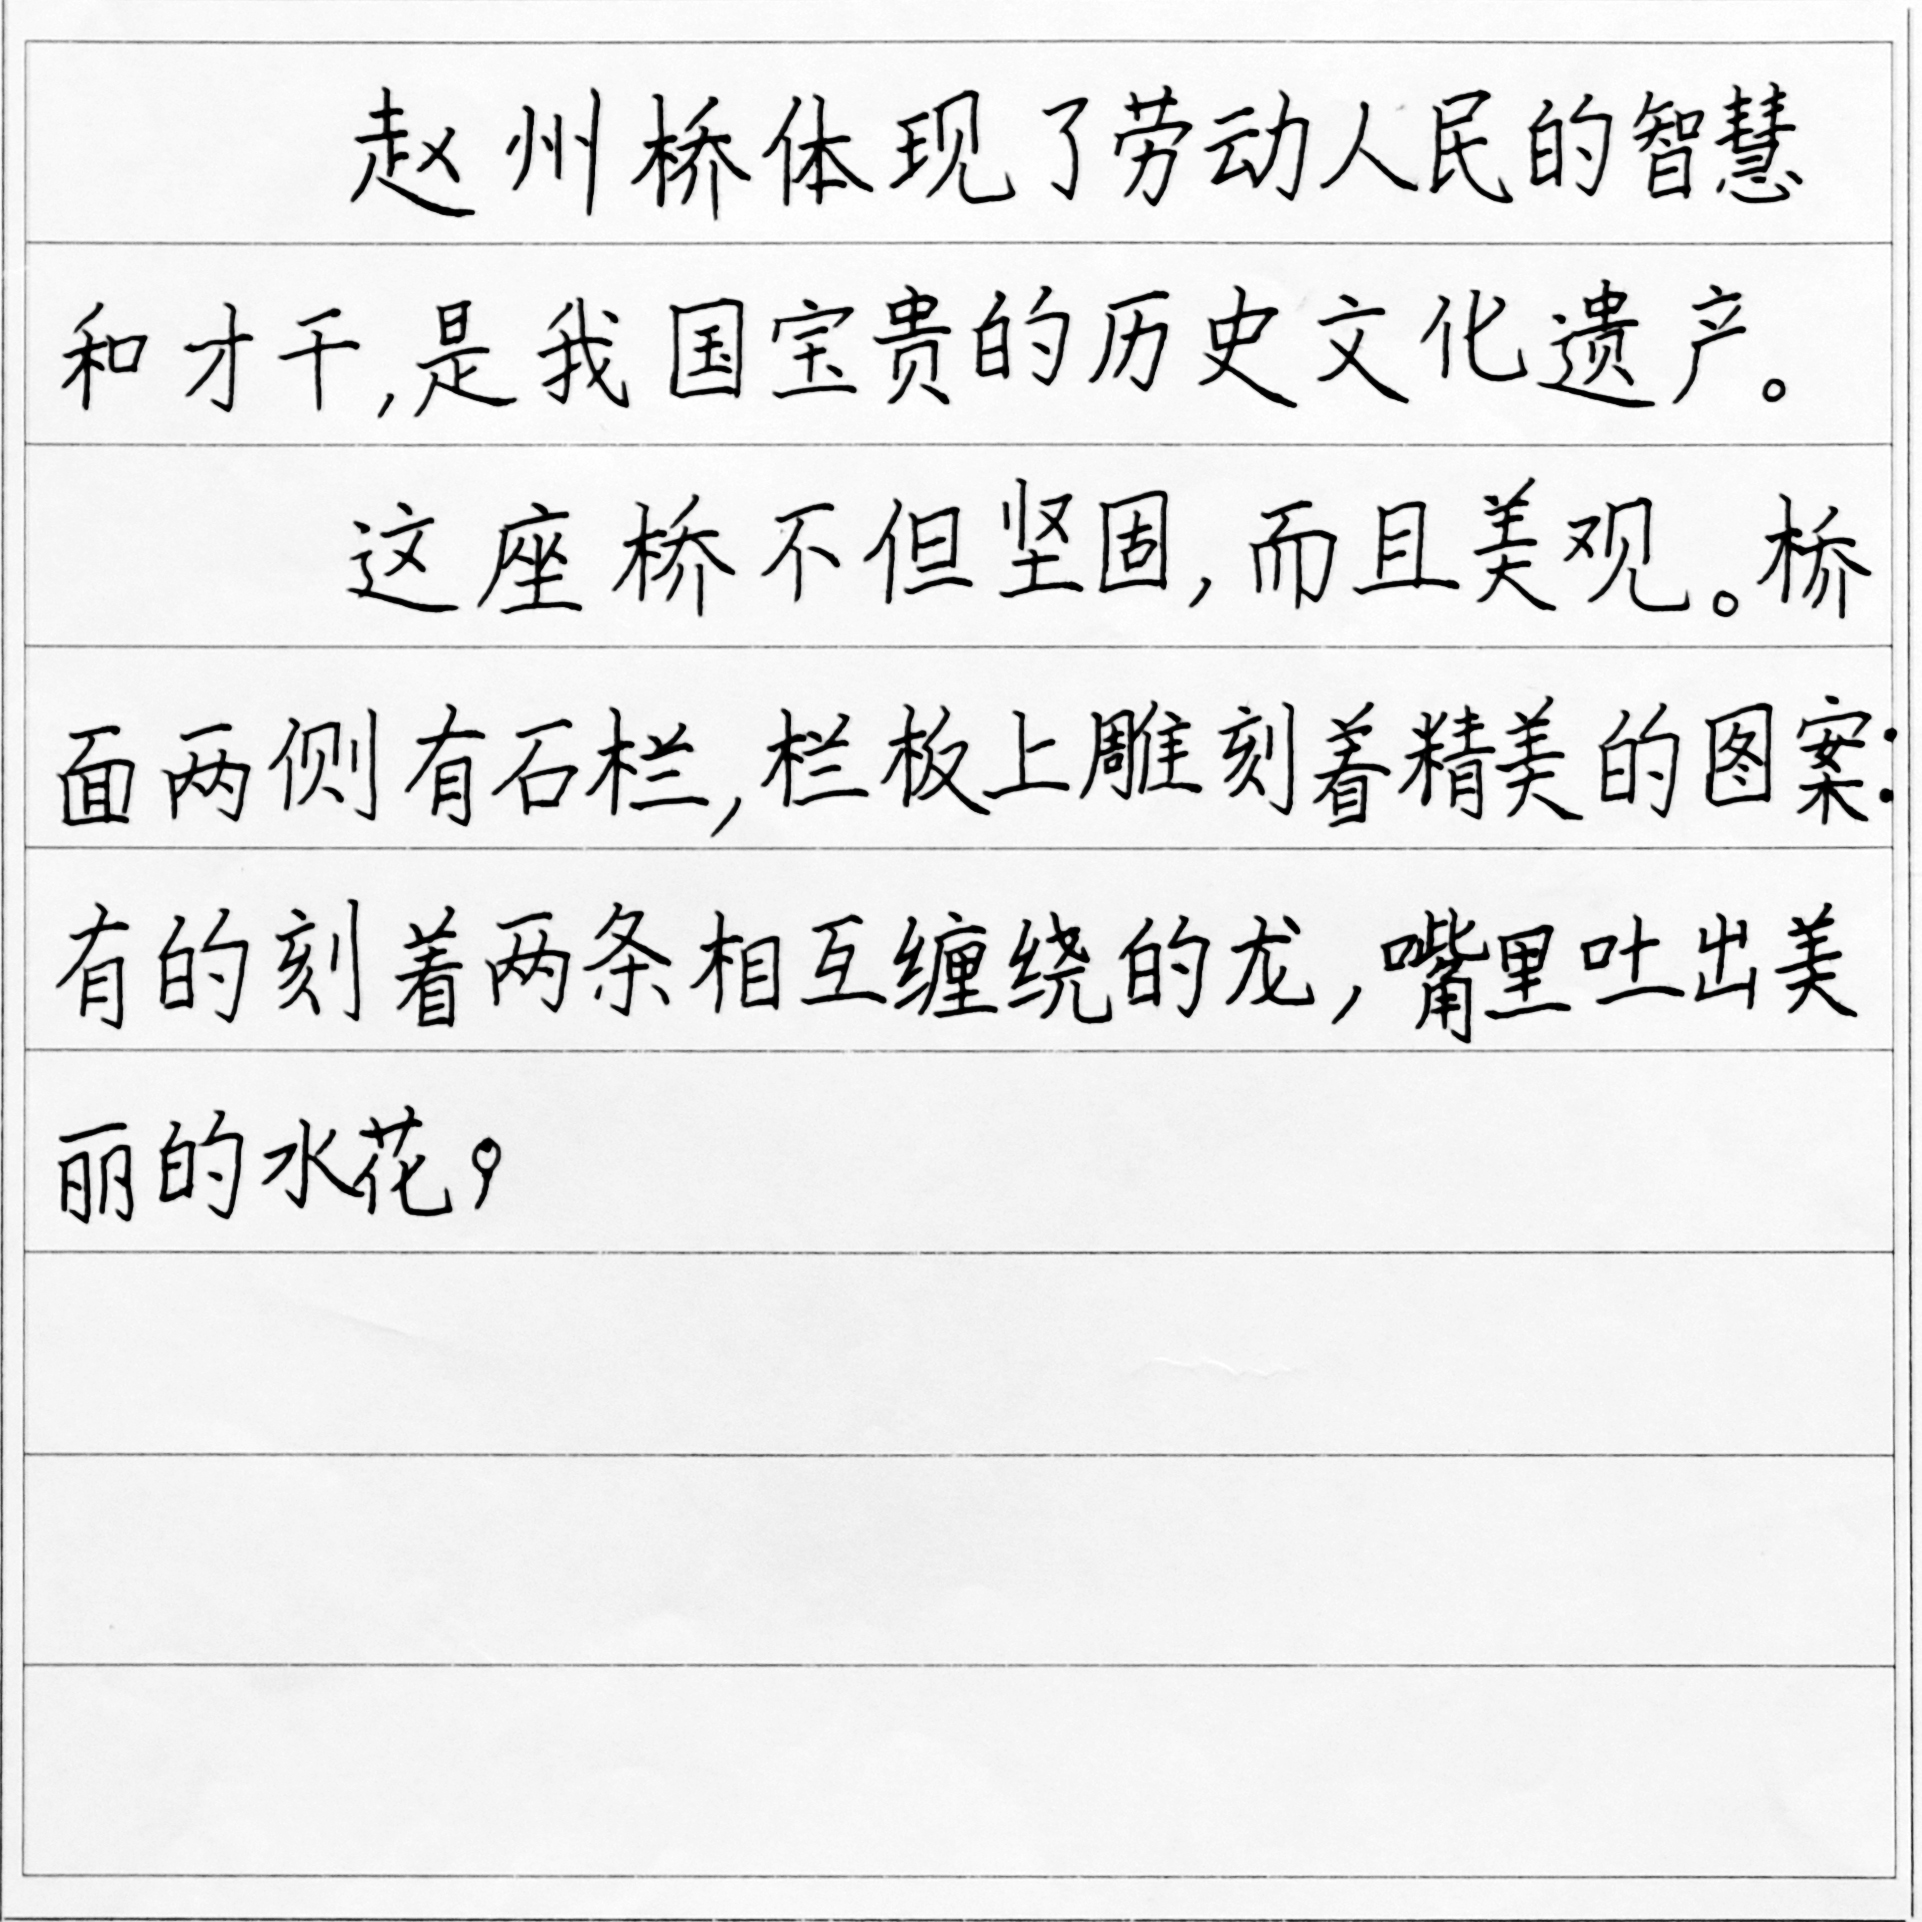 赵州桥体现了劳动人民的智慧
和才干,是我国宝贵的历史文化遗产。
这座桥不但坚固,而且美观。桥
面两侧有石栏,栏板上雕刻着精美的图案:
有的刻着两条相互缠绕的龙,嘴里吐出美
丽的水花,